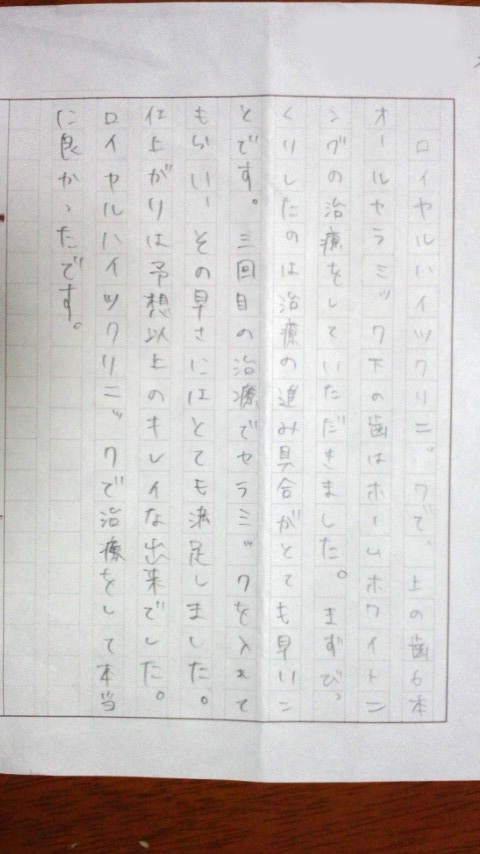 ロイヤルハイツクリニックで、上の歯6本
オールセラミック下の歯はホームホワイトニ
ングの治療をしていただきました。まずびっ
くりしたのは治療の進み具合がとても早いこ
とです。三回目の治療でセラミックを入れて
もらい、その早さにはとても満足しました。
仕上がりは予想以上のキレイな出来でした。
ロイヤルハイツクリニックで治療をして本当
に良かったです。